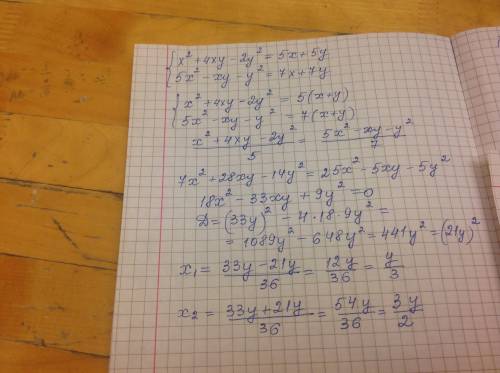 { x² + 4xy - 2y² = 5x + 5y
{ 5x² - xy - y² = 7x + 7y
{ x² + 4xy - 2y² = 5(x+y)
{ 5x² - xy - y² = 7(x+y)
(x² + 4xy - 2y²)/5 = (5x² - xy - y²)/7
7x² + 28xy - 14y² = 25x² - 5xy - 5y²
18x² - 33xy + 9y² = 0
D = (33y)² - 4·18·9y² =
= 1089y² - 648y² = 441y² = (21y)²
x₁ = (33y - 21y)/36 = 12y/36 = y/3
x₂ = (33y + 21y)/36 = 54y/36 = 3y/2